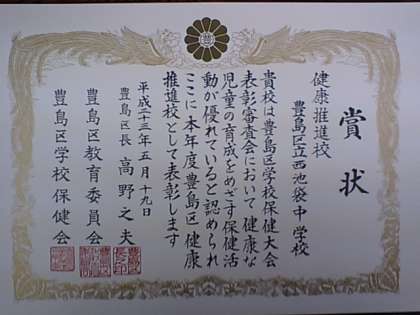 賞状
健康推進校
豊島区立西池袋中学校
貴校は豊島区学校保健大会
表彰審査会において健康な
児童の育成をめざす保健活
動が優れていると認められ
ここに本年度豊島区健康
推進校として表彰します
平成二十三年五月十九日
豊島区長 高野之夫
豊島区教育委員会
豊島区学校保健会